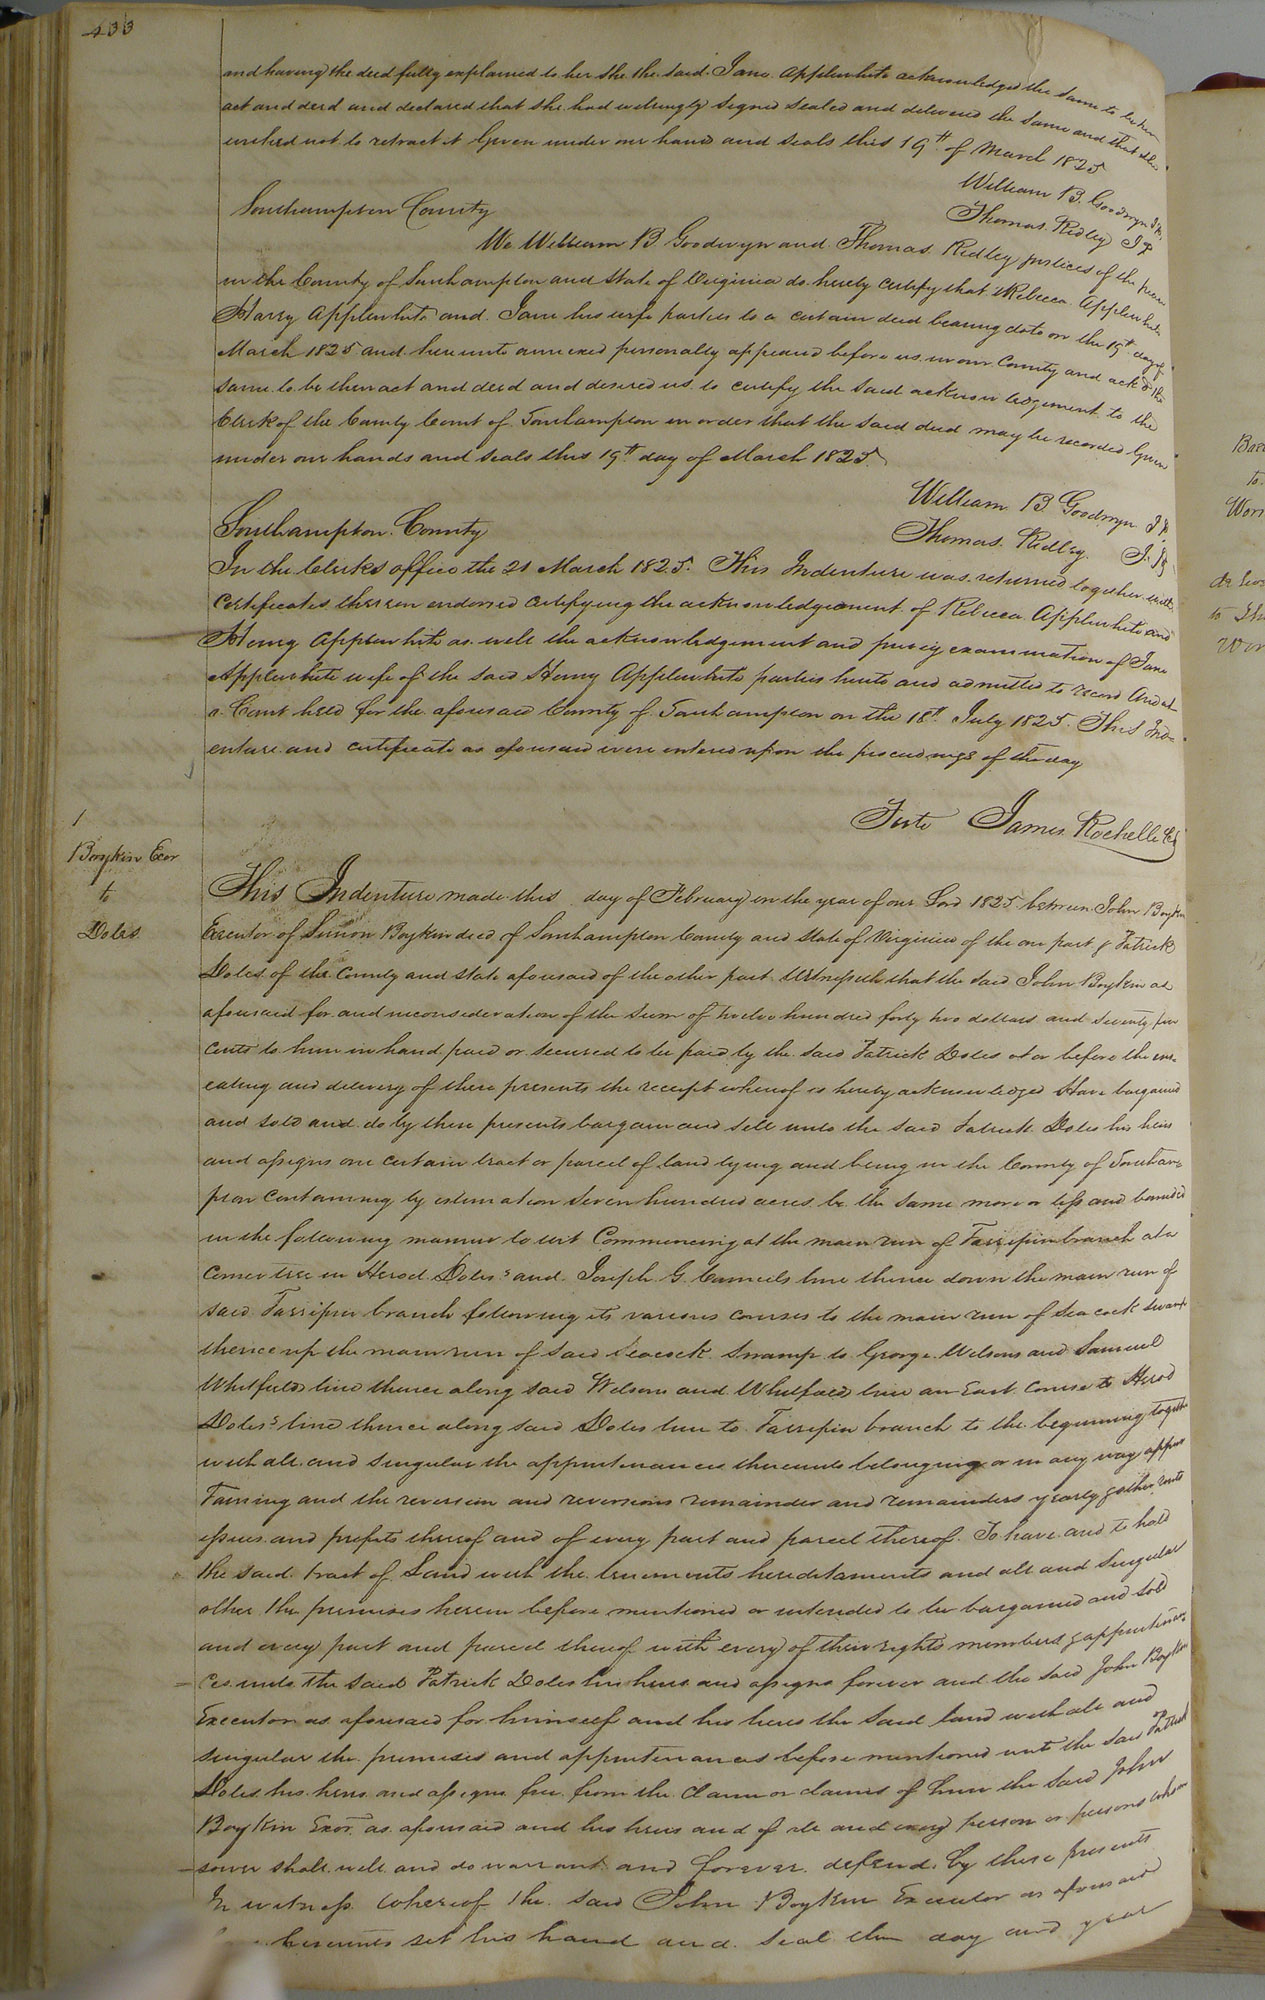 433
and having the deed fully explained to her she the said Jane Applewhite acknowledged the same to be her
act and deed and declared that she had willingly signed sealed and delivered the same and that she
wished not to retract it Given under our hand and seals this 19th of March 1825
William B. Goodwyn J.P.
Thomas Ridley J P
Southampton County
We William B Goodwyn and Thomas Ridley justices of the peace
in the County of Southampton and State of Virginia do hereby certify that Rebecca Applewhite
Harry Applewhite and Jane his wife parties to a certain deed bearing date on the 19th day of
March 1825 and hereunto annexed personally appeared before us in our County and ackd the
same to be their act and deed and desired us to certify the said acknowledgement to the
Clerk of the County Court of Southampton in order that the said deed may be recorded Given
under our hands and seals this 19th day of March 1825
William B Goodwyn J.P.
Thomas Ridley. J. P
Southampton County
In the Clerks office the 21 March 1825. This Indenture was returned together with
Certificates thereon endorsed certifying the acknowledgement of Rebecca Applewhite and
Henry Applewhite as well the acknowledgement and privy examination of Jane
Applewhite wife of the said Henry Applewhite parties hereto and admitted to record And at
a Court held for the aforesaid County of Southampton on the 18th July 1825. This Ind=
enture and certificate as aforesaid were entered upon the proceedings of the day
Teste James Rochelle Ck
1
Boykin Exor
to
Doles
This Indenture made this day of February in the year of our Lord 1825 between John Boykin
Executor of Simon Boykin decd of Southampton County and State of Virginia of the one part & Patrick
Doles of the County and state aforesaid of the other part Witnesseth that the said John Boykin as
aforesaid for and in consideration of the sum of twelve hundred forty two dollars and seventy five
cents to him in hand paid or secured to be paid by the said Patrick Doles at or before the ens=
ealing and delivery of these presents the receipt whereof is hereby acknowledged Have bargained
and sold and do by these presents bargain and sell unto the said Patrick Doles his heirs
and assigns one certain tract or parcel of land lying and being in the County of Southam=
pton containing by estimation seven hundred acres be the same more or less and bounded
in the following manner to wit Commencing at the main run of Tarripin branch at a
corner tree in Herod Doles's and Joseph G. Council's line thence down the main run of
said Tarripin branch following its various courses to the main run of Seacock swamp
thence up the main run of said Seacock Swamp to George Wilsons and Samuel
Whitfields line thence along said Wilsons and Whitfield line an East course to Herod
Doles's line thence along said Doles line to Tarripin branch to the beginning together
with all and singular the appurtenances thereunto belonging or in any way apper
taining and the reversion and reversions remainder and remainders yearly & other rents
issues and profits thereof and of every part and parcel thereof. To have and to hold
the said tract of Land with the tenements hereditaments and all and singular
other the premises herein before mentioned or intended to be bargained and sold
and every part and parcel thereof with every of their rights members & appurtenan
ces unto the said Patrick Doles his heirs and assigns forever and the said John Boykin
Executor as aforesaid for himself and his heirs the said land with all and
singular the premises and appurtenances before mentioned unto the said Patrick
Doles his heirs and assigns free from the claim or claims of him the said John
Boykin Exor. as aforesaid and his heirs and of all and every person or persons whom
soever shall will and do warrant and forever defend by these presents
In witness whereof the said John Boykin Executor as aforesaid
hereunto set his hand and seal the day and year